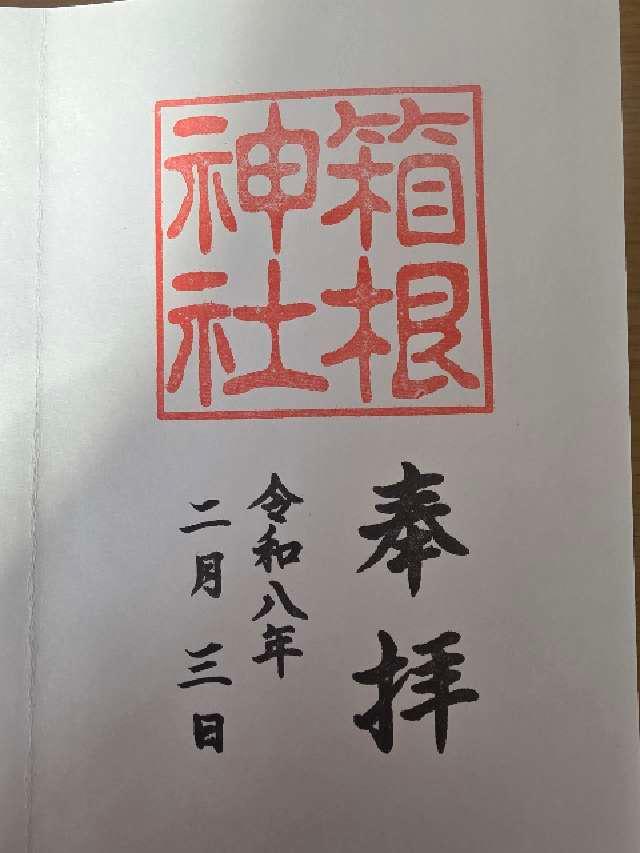 箱根
神社
奉拝
令和八年
二月三日